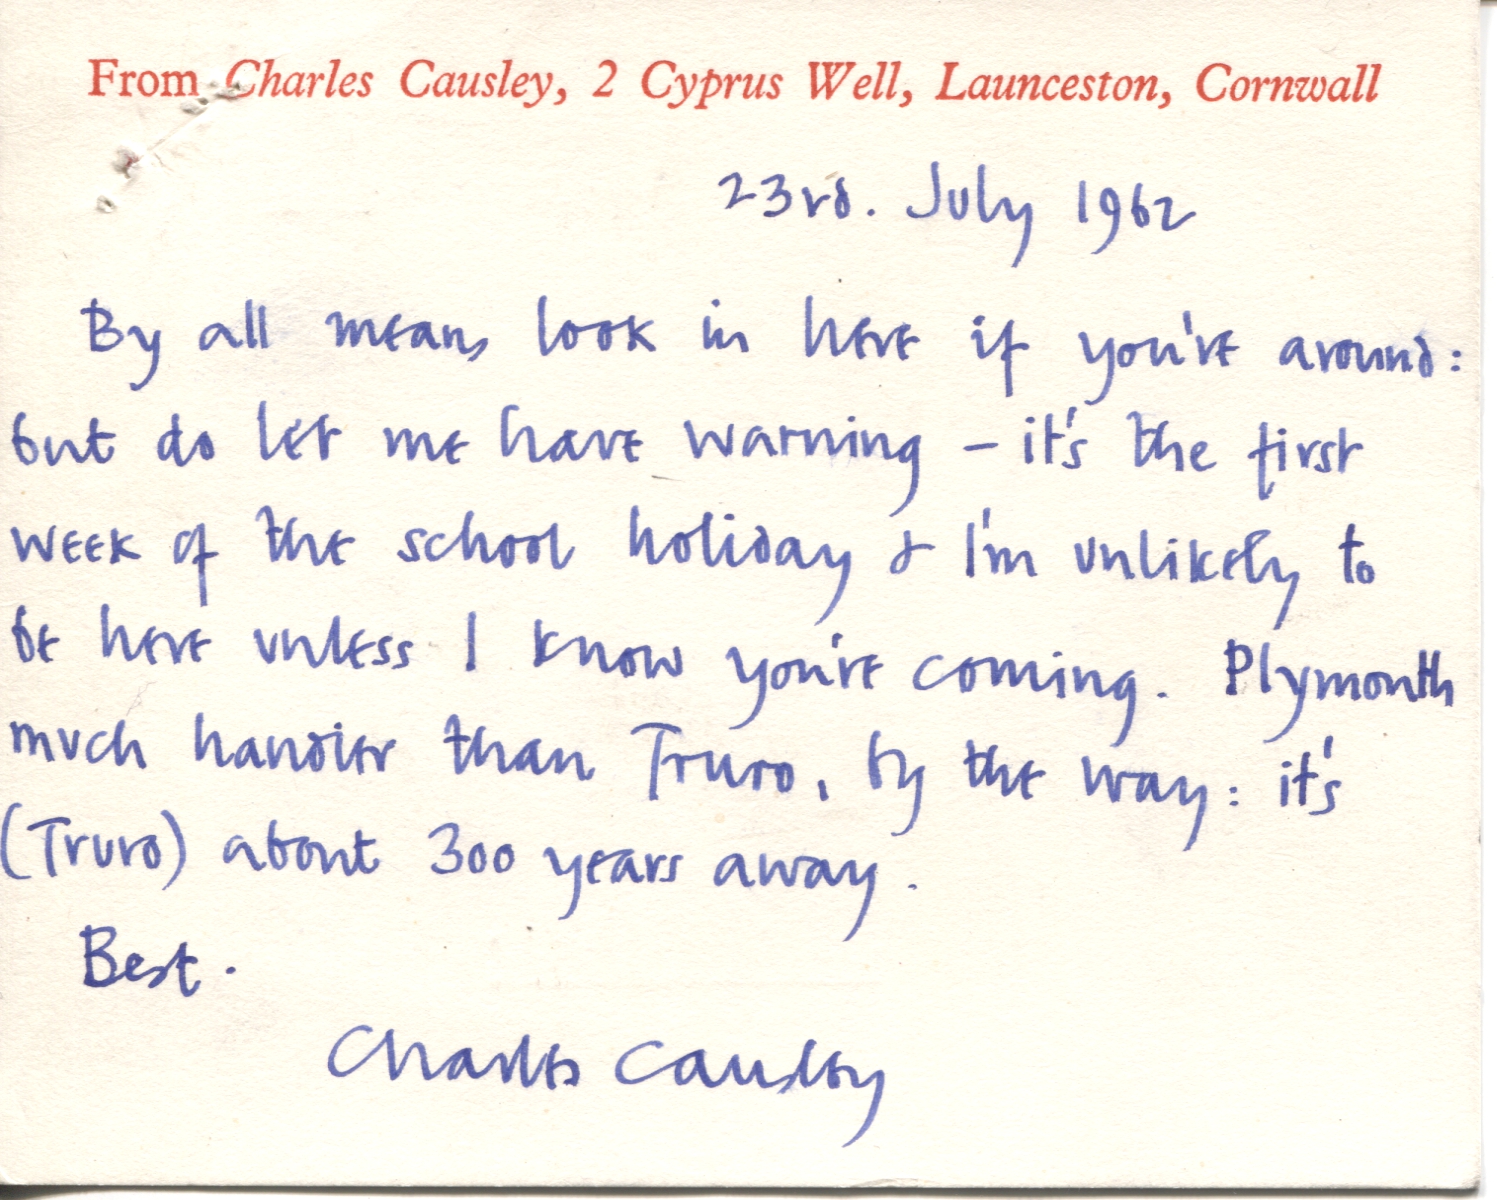 From Charles Causley, 2 Cyprus Well, Launceston, Cornwall
23rd. July 1962
By all means look in here if you're around:
but do let me have warning – it's the first
week of the school holiday & I'm unlikely to
be here unless I know you're coming. Plymouth
much handier than Truro, by the way: it's
(Truro) about 300 years away.
Best.
Charles Causley